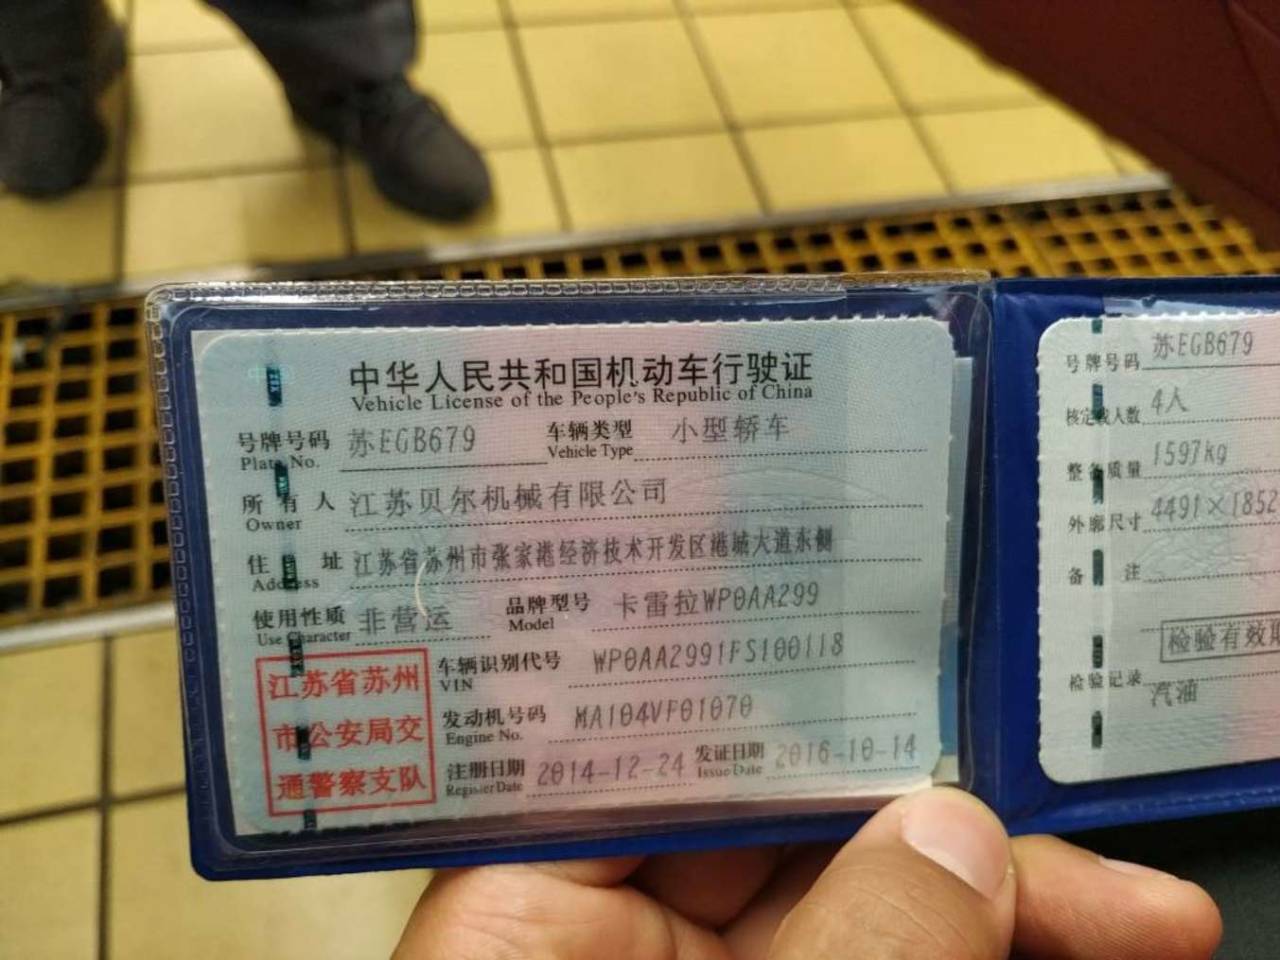 中华人民共和国机动车行驶证
Vehicle License of the People's Republic of China
号牌号码 苏EGB679 车辆类型 小型轿车
Plate No. Vehicle Type
所有人 江苏贝尔机械有限公司
Owner
住址 江苏省苏州市张家港经济技术开发区港城大道东侧
Address
使用性质 非营运 品牌型号 卡雷拉WP0AA299
Use Character Model
车辆识别代号 WP0AA2991FS100118
VIN
发动机号码 MA104VF01070
Engine No.
注册日期 2014-12-24 发证日期 2016-10-14
Register Date Issue Date
江苏省苏州
市公安局交
通警察支队
号牌号码 苏EGB679
核定载人数 4人
整备质量 1597kg
外廓尺寸 4491×1852
备注
检验有效期
检验记录
汽油